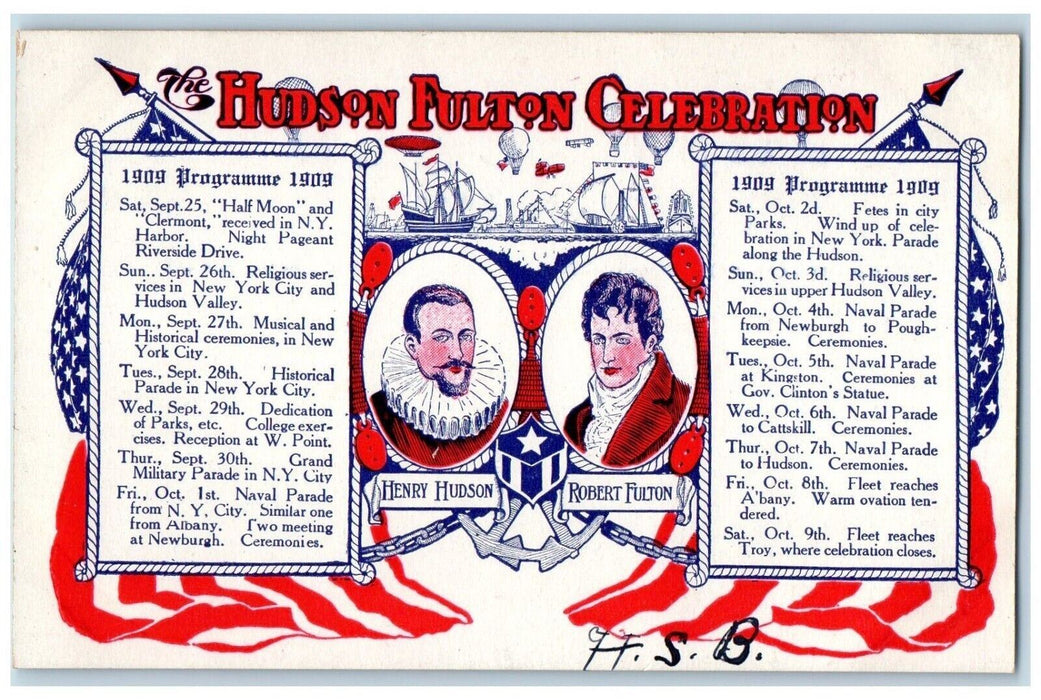 The Hudson Fulton Celebration
1909 Programme 1909
Sat, Sept. 25, "Half Moon" and
"Clermont," received in N.Y.
Harbor. Night Pageant
Riverside Drive.
Sun.. Sept. 26th. Religious ser-
vices in New York City and
Hudson Valley.
Mon., Sept. 27th. Musical and
Historical ceremonies, in New
York City.
Tues., Sept. 28th. Historical
Parade in New York City.
Wed., Sept. 29th. Dedication
of Parks, etc. College exer-
cises. Reception at W. Point.
Thur., Sept. 30th. Grand
Military Parade in N.Y. City
Fri., Oct. 1st. Naval Parade
from N, Y, City. Similar one
from Albany. Two meeting
at Newburgh. Ceremonies.
HENRY HUDSON
ROBERT FULTON
1909 Programme 1909
Sat., Oct. 2d. Fetes in city
Parks. Wind up of cele-
bration in New York. Parade
along the Hudson.
Sun., Oct. 3d. Religious ser-
vices in upper Hudson Valley.
Mon., Oct. 4th. Naval Parade
from Newburgh to Pough-
keepsie. Ceremonies.
Tues., Oct. 5th. Naval Parade
at Kingston. Ceremonies at
Gov. Clinton's Statue.
Wed., Oct. 6th. Naval Parade
to Cattskill. Ceremonies.
Thur., Oct. 7th. Naval Parade
to Hudson. Ceremonies.
Fri., Oct. 8th. Fleet reaches
A'bany. Warm ovation ten-
dered.
Sat., Oct. 9th. Fleet reaches
Troy, where celebration closes.
H. S. B.